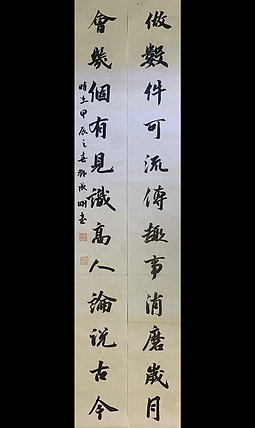 做数件可流傳趣事消磨歲月
會幾個有見識高人論説古今
時在甲辰之春